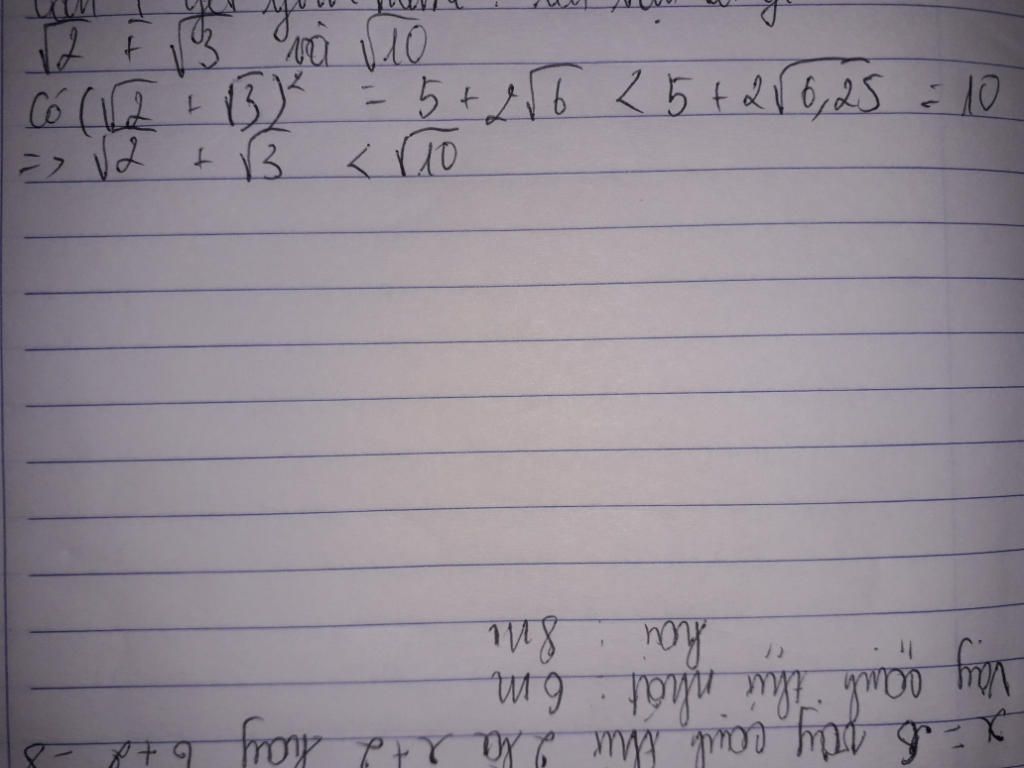 √2 + √3 và √10
Có (√2 + √3)² = 5 + 2√6 < 5 + 2√6,25 = 10
=> √2 + √3 < √10
x = 6 vậy cạnh thứ 2 là x+2 hay 6+2 = 8
Vậy cạnh thứ nhất : 6m
" " hai : 8m